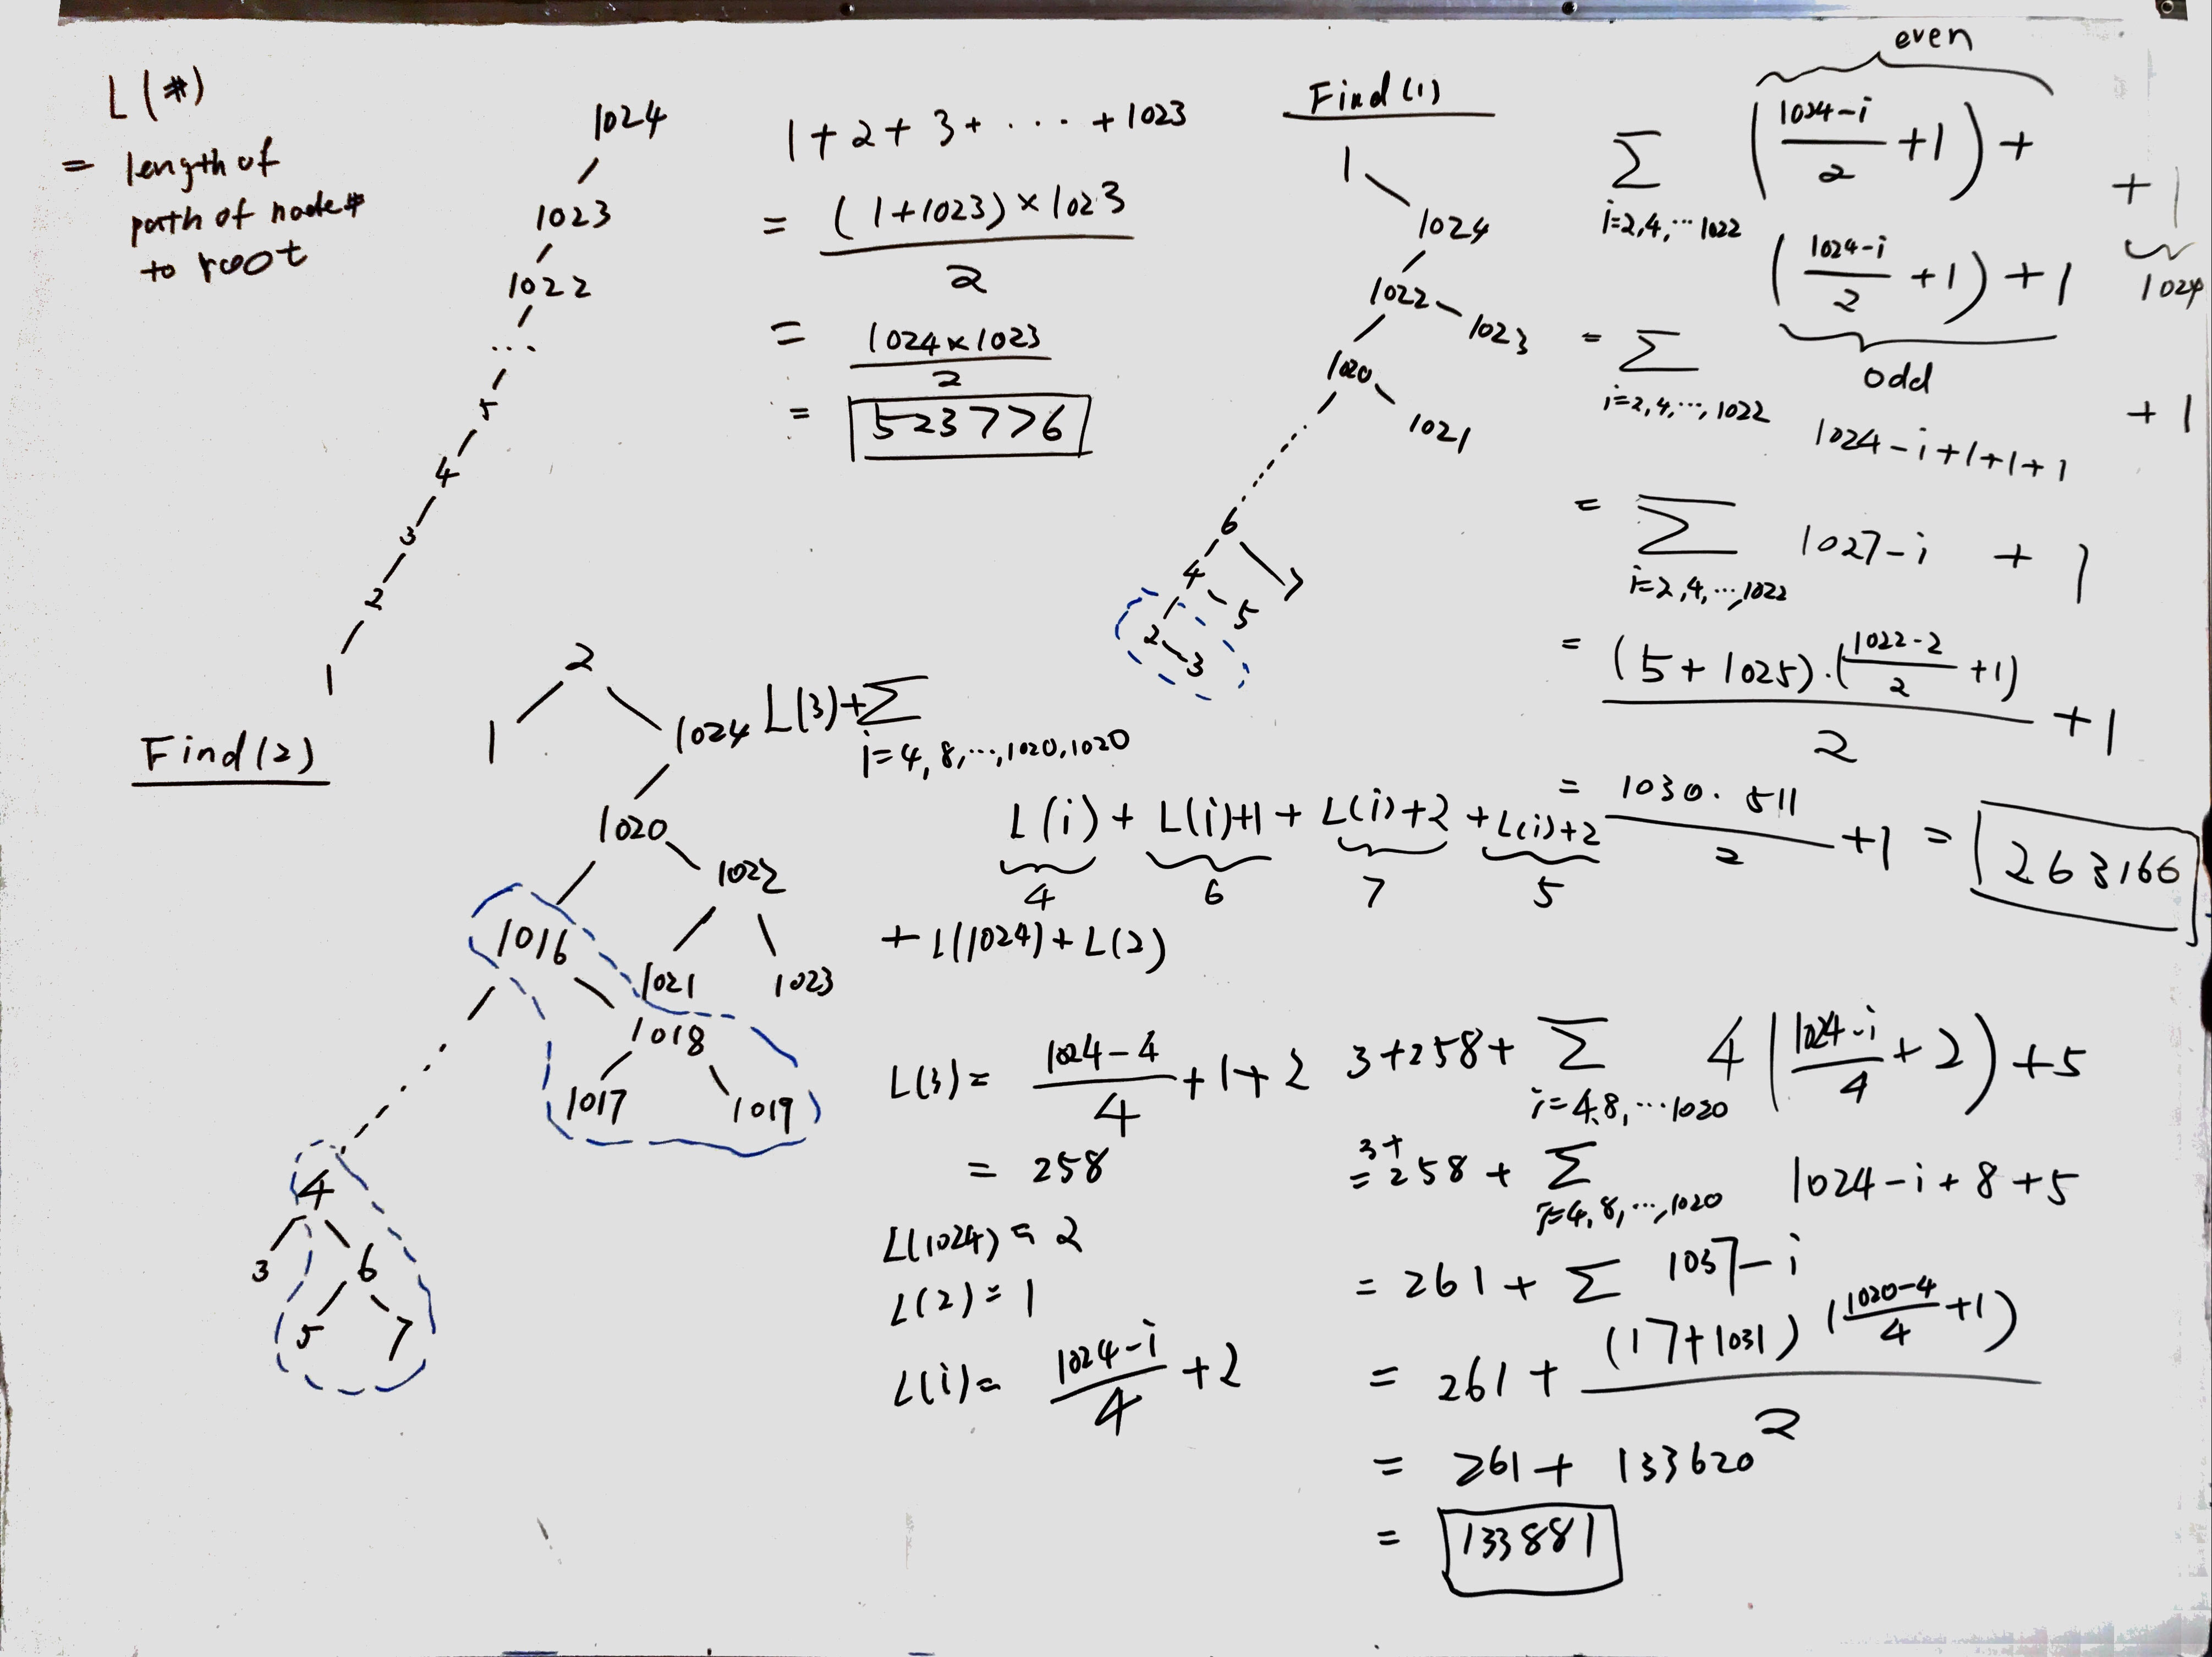 L(#)
= length of
path of node#
to root
1024
1023
1022
...
5
4
3
2
1
1+2+3+ .... +1023
= (1+1023)×1023
2
= 1024×1023
2
= 523776
Find(1)
1
1024
1022
1023
1020
1021
6
4
7
5
2
3
even
∑ (1024-i / 2 +1) + +1
i=2,4,...1022
(1024-i / 2 +1)+1 1024
odd
= ∑
i=2,4,...,1022
1024-i+1+1+1 +1
= ∑ 1027-i + 1
i=2,4,...,1022
= (5+1025)·(1022-2 / 2 +1)
2 +1
= 1030. 511
2 +1 = 263166
Find(2)
2
1
1024
1020
1022
1016
1021
1023
1018
1017
1019
4
3
6
5
7
L(3)+∑
i=4,8,...,1020,1020
L(i) + L(i)+1 + L(i)+2 + L(i)+2
4 6 7 5
+ L(1024)+L(2)
L(3)= 1024-4 / 4 +1+2
= 258
L(1024)=2
L(2)=1
L(i)= 1024-i / 4 +2
3+258+ ∑ 4(1024-i / 4 +2)+5
i=4,8,...1020
3+
= 258 + ∑ 1024-i+8+5
i=4,8,...,1020
= 261 + ∑ 1037-i
= 261 + (17+1031) (1020-4 / 4 +1)
2
= 261 + 133620
= 133881